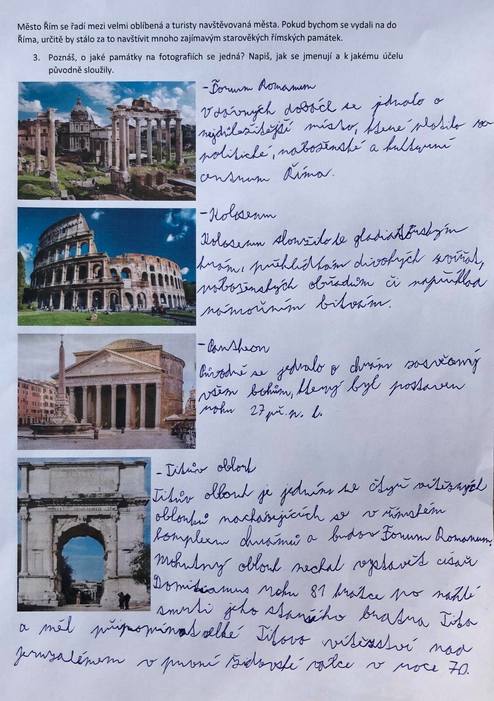 Město Řím se řadí mezi velmi oblíbená a turisty navštěvovaná města. Pokud bychom se vydali na do
Říma, určitě by stálo za to navštívit mnoho zajímavým starověkých římských památek.
3. Poznáš, o jaké památky na fotografiích se jedná? Napiš, jak se jmenují a k jakému účelu
původně sloužily.
-Forum Romanum
V dávných dobách se jednalo o
nejdůležitější místo, které platilo za
politické, náboženské a kulturní
centrum Říma.
-Koloseum
Koloseum sloužilo ke gladiátorským
hrám, přehlídkám divokých zvířat,
náboženských obřadům či například
námořním bitvám.
-Pantheon
Původně se jednalo o chrám zasvěcený
všem bohům, který byl postaven
roku 27 př. n. l.
-Titův oblouk
Titův oblouk je jedním ze čtyř vítězných
oblouků nacházejících se v římském
komplexu chrámů a budov Forum Romanum.
Mohutný oblouk nechal vystavět císař
Domitianus roku 81 krátce po náhlé
smrti jeho staršího bratra Tita
a měl připomínat velké Titovo vítězství nad
Jeruzalémem v první židovské válce v roce 70.